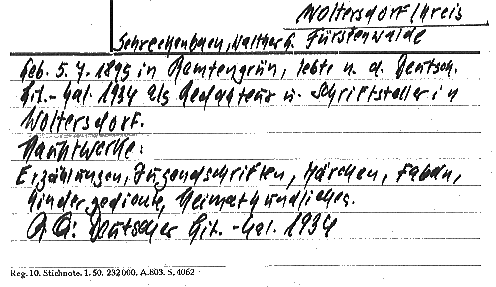 Woltersdorf/Kreis
Schreckenbach, Walther G. Fürstenwalde
Geb. 5.7.1895 in Ramtengrün, lebte n. d. Deutsch.
Lit.-Kal. 1934 als Redakteur u. Schriftsteller in
Woltersdorf.
Hauptwerke:
Erzählungen, Jugendschriften, Märchen, Fabeln,
Kindergedichte, Heimatkundliches.
Deutscher Lit.-Kal. 1934
Reg. 10. Stichnote. 1. 50. 232000. A.803. S. 4062